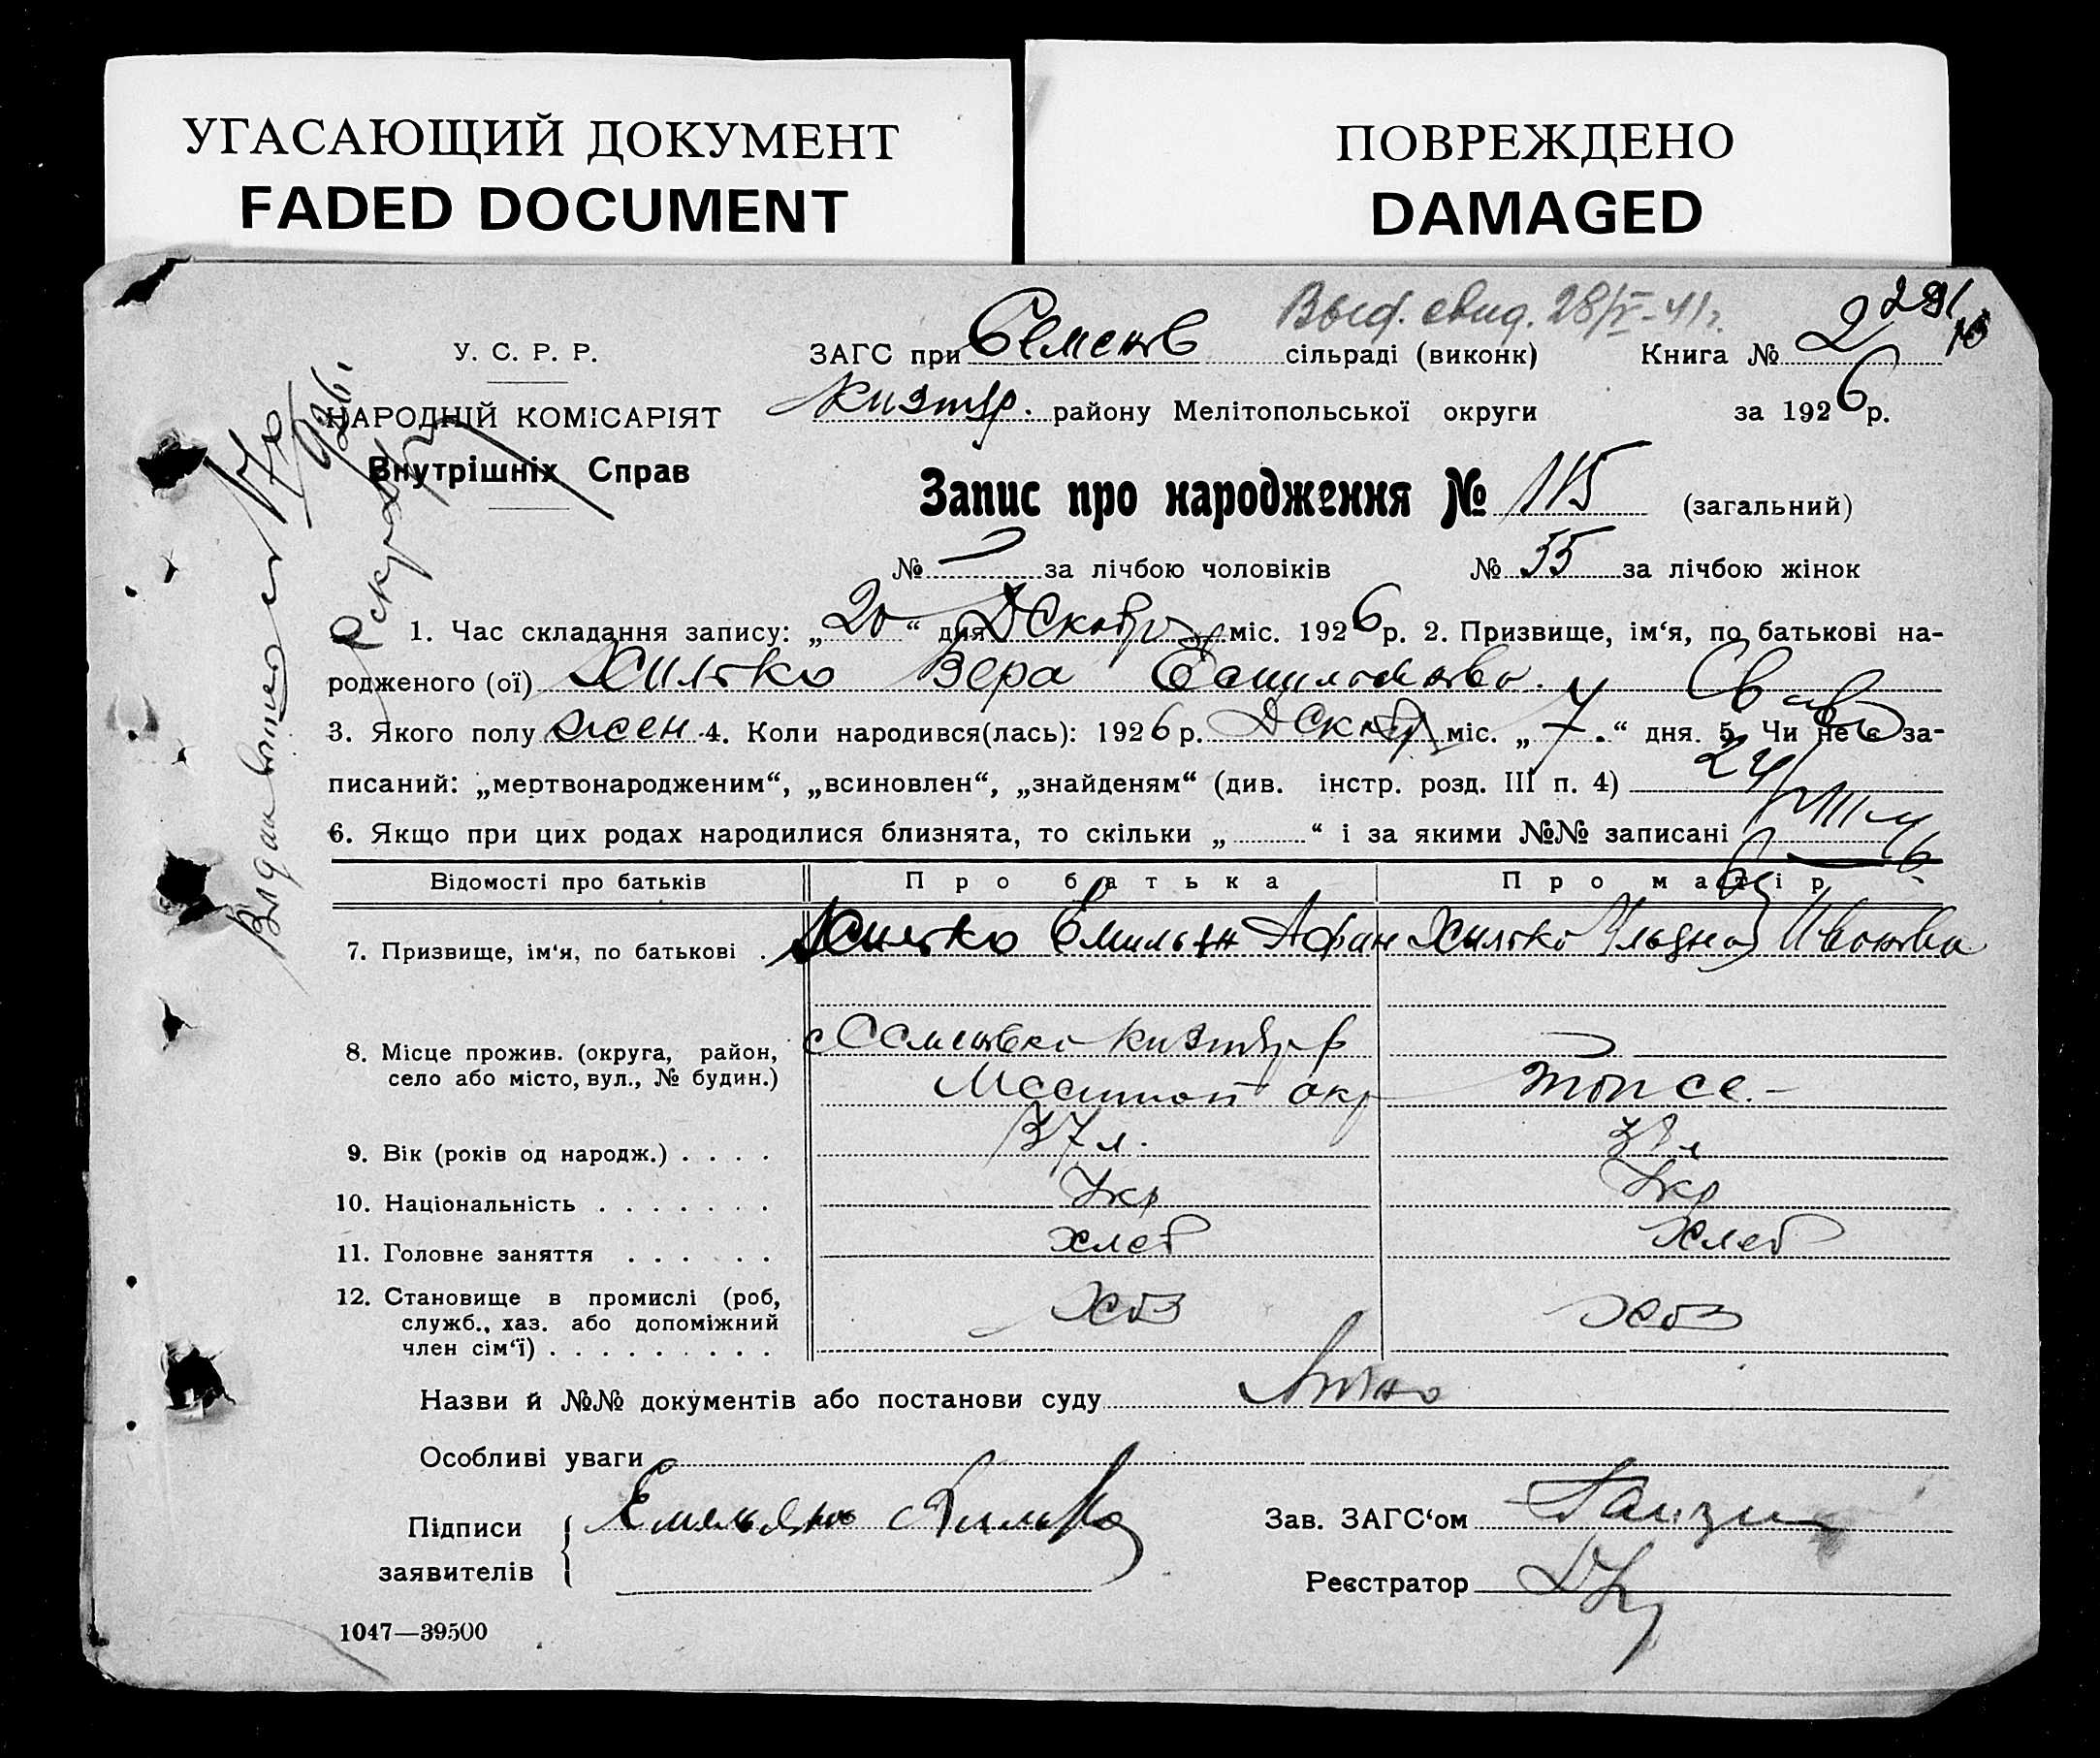 УГАСАЮЩИЙ ДОКУМЕНТ
FADED DOCUMENT
ПОВРЕЖДЕНО
DAMAGED
Выд. свид. 28/V-41г.
У. С. Р. Р.
НАРОДНІЙ КОМІСАРІЯТ
Внутрішніх Справ
ЗАГС при Семенов сільраді (виконк) Книга № 2
району Мелітопольської округи за 1926 р.
Запис про народження № 115 (загальний)
№ за лічбою чоловіків № 55 за лічбою жінок
1. Час складання запису: „20“ дня Декабря міс. 1926 р. 2. Призвище, ім‘я, по батькові на-
родженого (ої) Хилько Вера Емильяновна
3. Якого полу жен 4. Коли народився(лась): 1926 р. Декабр міс. „7.“ дня. 5. Чи не є за-
писаний: „мертвонародженим“, „всиновлен“, „знайденям“ (див. інстр. розд. III п. 4)
6. Якщо при цих родах народилися близнята, то скільки „ “ і за якими №№ записані
Відомості про батьків Про батька Про матір
7. Призвище, ім‘я, по батькові . Хилько Емильян Афан Хилько Ульяна Ивановна
8. Місце прожив. (округа, район, с Семеновка
село або місто, вул., № будин.) Мелитоп окр
9. Вік (років од народж.) . . . . 37 л.
10. Національність . . . . . . . Укр Укр
11. Головне заняття . . . . . хлеб хлеб
12. Становище в промислі (роб,
служб., хаз. або допоміжний хоз хоз
член сім‘ї) . . . . . . . . .
Назви й №№ документів або постанови суду
Особливі уваги
Підписи Емельян Хилько Зав. ЗАГС‘ом
заявителів Реєстратор
1047—39500